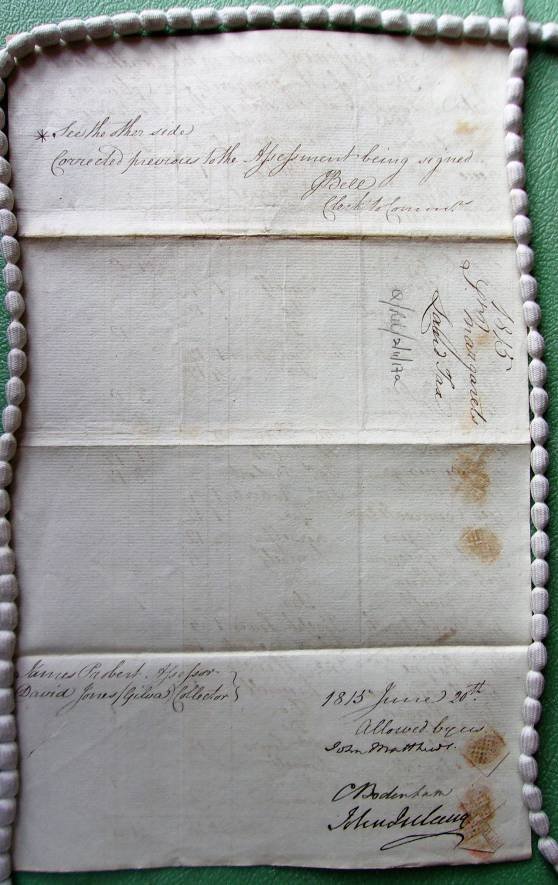 * See the other side
Corrected previous to the Assessment being signed
J Bell
Clerk to Commrs
1815
St Margarets
Land Tax
Q/Rel/2/6/17a
James Probert. Assessor
David Jones (Gilva) Collector }
1815 June 20th
Allowed by us
John Matthews.
C Bodenham